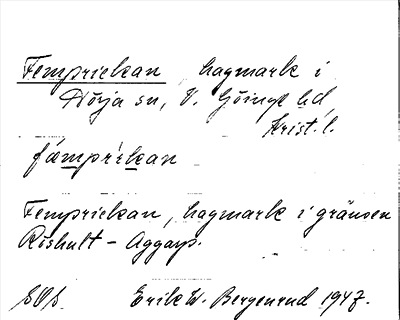 Femprickan, hagmark i
Nörja sn, V. Göinge hd,
Krist. l.
fæmprìkan
Femprickan, hagmark i gränsen
Rishult - Aggarp.
SOS. Erik W. Bergenrud 1947.